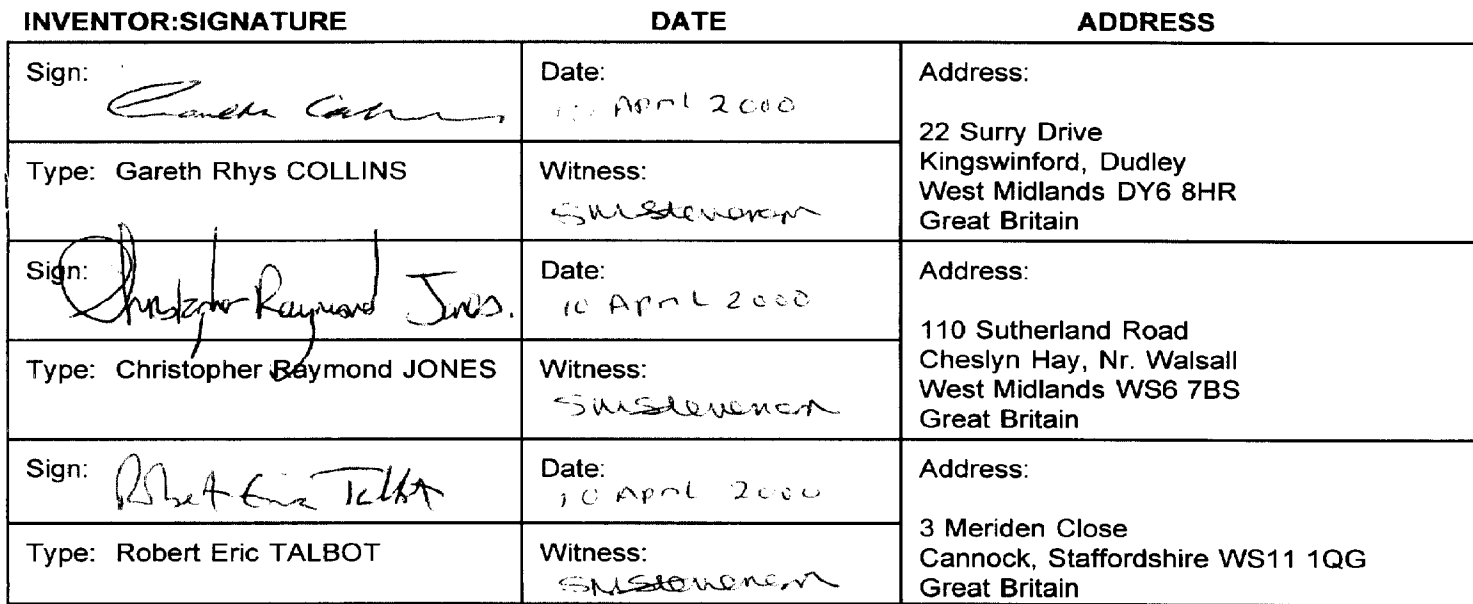 INVENTOR:SIGNATURE DATE ADDRESS
Sign: Gareth Collins
Date: 10 April 2000
Address:
22 Surry Drive
Kingswinford, Dudley
West Midlands DY6 8HR
Great Britain
Type: Gareth Rhys COLLINS
Witness:
SMStevenson
Sign: Christopher Raymond Jones.
Date:
10 April 2000
Address:
110 Sutherland Road
Cheslyn Hay, Nr. Walsall
West Midlands WS6 7BS
Great Britain
Type: Christopher Raymond JONES
Witness:
SMStevenson
Sign: Robert Eric Talbot
Date:
10 April 2000
Address:
3 Meriden Close
Cannock, Staffordshire WS11 1QG
Great Britain
Type: Robert Eric TALBOT
Witness:
SMStevenson